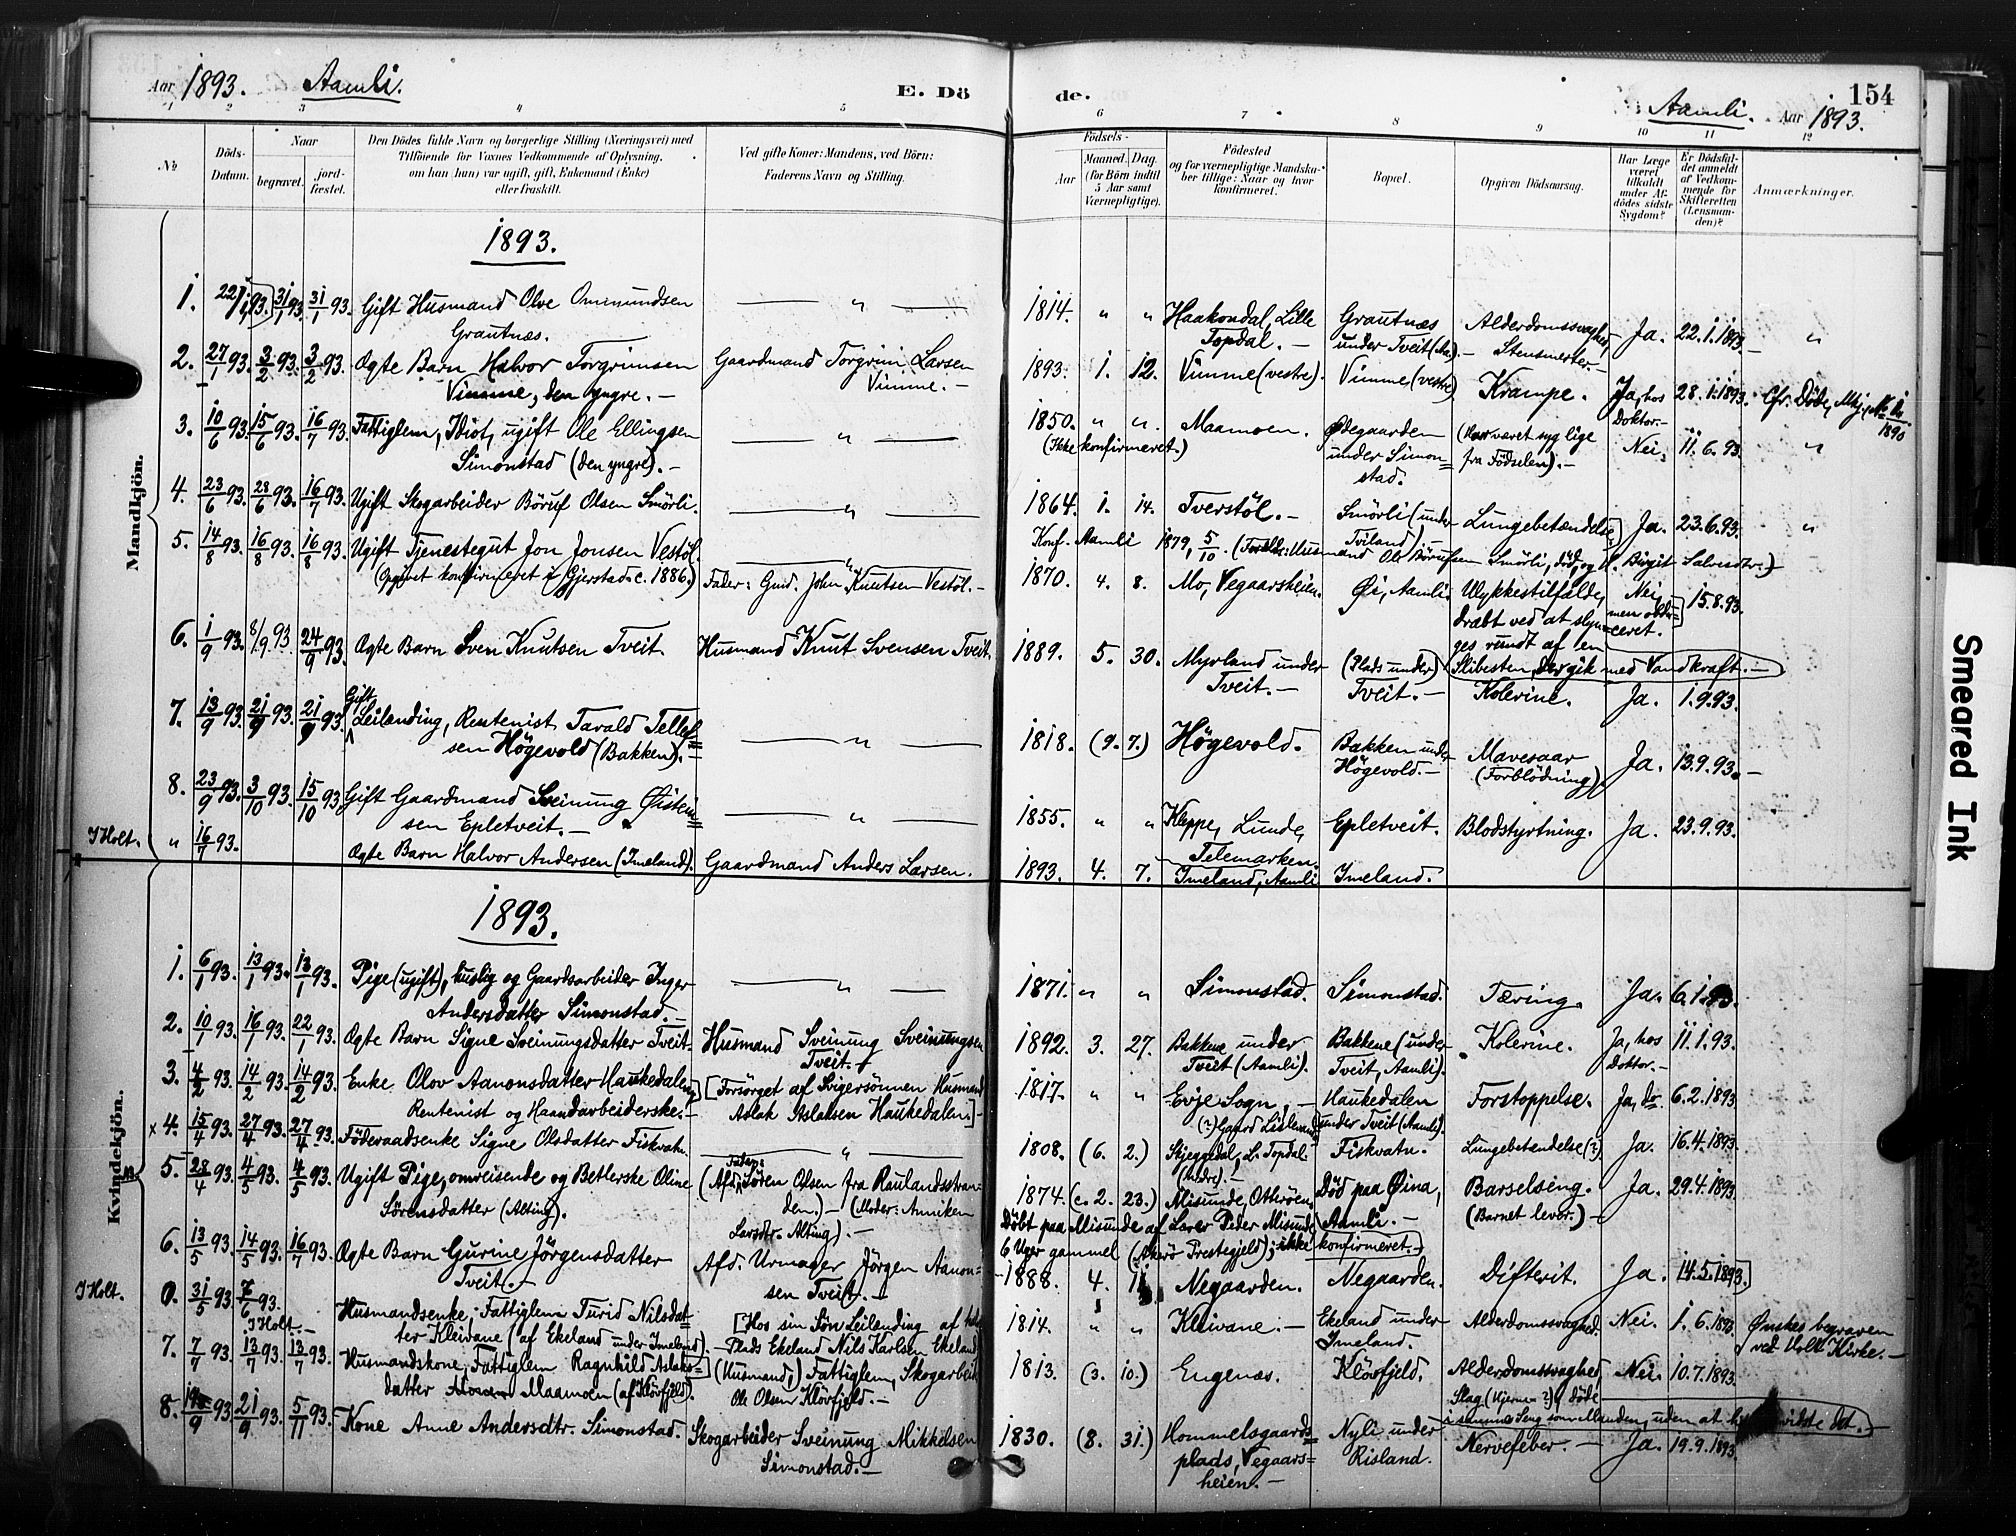 Aar 1893. Aamli. E. Dö
de. Aamli. Aar 1893. 154
1 2 3 4 5 6 7 8 9 10 11 12
No
Döds-Datum.
Naar
begravet.
jord-fæstet.
Den Dödes fulde Navn og borgerlige Stilling (Næringsvei) med
Tilföiende for Voxnes Vedkommende af Oplysning,
om han (hun) var ugift, gift, Enkemand (Enke)
eller fraskilt.
Ved gifte Koner: Mandens, ved Börn:
Faderens Navn og Stilling.
Födsels-
Aar
Maaned. Dag.
(for Börn indtil
5 Aar samt
Værnepligtige).
Födested
og for værnepligtige Mandska-
ber tillige: Naar og hvor
konfirmeret.
Bopæl.
Opgiven Dödsaarsag.
Har Læge
været
tilkaldt
under Af-
dödes sidste
Sygdom?
Er Dödsfal-
det anmeldt
af Vedkom-
mende for
Skifteretten
(Lensman-
den)?
Anmærkninger.
Mandkjön.
1893.
1. 22/1 93. 31/1 93. 31/1 93. Gift Husmand Olve Ommundsen
Grautnæs. — " —
1814. " " Haakondal, Lille
Topdal. — Grautnæs
under Tveit (Aa). — Alderdomssvaghed,
Stensmerter. — Ja. 22.1.1893. — "
2. 27/1 93. 3/2 93. 3/2 93. Ægte Barn Halvor Torgrimsen
Vimme, den yngre. — Gaardmand Torgrim Larsen
Vimme. —
1893. 1. 12. Vimme (vestre). Vimme (vestre) Krampe. Ja, hos
Doktor. — 28.1.1893. Cfr. Döde, Mkj, No
1890
3. 10/6 93. 15/6 93. 16/7 93. Fattiglem, Idiot, ugift Ole Ellingsen
Simonstad (den yngre). — — " —
1850. " " Maamoen. Ødegaarden
under Simon=
stad. (Har været syg lige
fra Födselen). — Nei. 11.6.93. "
(Ikke konfirmeret.)
4. 23/6 93. 28/6 93. 16/7 93. Ugift Skogarbeider Böruf Olsen Smörli. — " —
1864. 1. 14. Tverstöl. — Smörli (under
Tviland) Lungebetændelse Ja. 23.6.93. "
Konf. Aamli 1879, 5/10. (Forældre: Husmand Ole Börufsen Smörli, död, og H. Birgit Salvesdtr.)
5. 14/8 93. 16/8 93. 16/8 93. Ugift Tjenestegut Jon Jonsen Vestöl
(Opgivet konfirmeret i Gjerstad c. 1886.) — " —
Fader: Gmd. John Knutsen Vestöl. —
1870. 4. 8. Mo, Vegaarsheien. Øi, Aamli. Ulykkestilfælde,
dræbt ved at slyn=
ges rundt af en
Slibesten, der gik med Vandkraft. — Nei,
men obdu=
ceret. 15.8.93.
6. 1/9 93. 8/9 93. 24/9 93. Ægte Barn Sven Knutsen Tveit. Husmand Knut Svensen Tveit.
1889. 5. 30. Myrland under
Tveit. — (Plads under)
Tveit. — Kolerine. Ja. 1.9.93.
7. 13/9 93. 21/9 93. 21/9 93. Gift
Leilending, Rentenist Tarald Tellef=
sen Högevold (Bakken). — — " —
1818. (9. 7.) Högevold. Bakken under
Högevold. — Mavesaar
(Forblödning). Ja. 13.9.93. —
8. 23/9 93. 3/10 93. 15/10 93. Gift Gaardmand Sveinung Øistein=
sen Epletveit. — — " —
1855. " " Kleppe, Lunde,
Telemarken. Epletveit. Blodstyrtning. Ja. 23.9.93.
I Holt. " 16/7 93. Ægte Barn Halvor Andersen (Imeland). Gaardmand Anders Larsen.
1893. 4. 7. Imeland, Aamli Imeland.
Kvindekjön.
1893.
1. 6/1 93. 13/1 93. 13/1 93. Pige (ugift), huslig og Gaardsarbeider Inger
Andersdatter Simonstad. — — " —
1871. " " Simonstad. Simonstad. Tæring. Ja. 6.1.93.
2. 10/1 93. 16/1 93. 22/1 93. Ægte Barn Signe Sveinungsdatter Tveit. Husmand Sveinung Sveinungsen
Tveit. —
1892. 3. 27. Bakkene under
Tveit (Aamli). Bakkene (under
Tveit, Aamli). Kolerine. Ja, hos
Doktor. — 11.1.93.
3. 4/2 93. 14/2 93. 14/2 93. Enke Olov Aanonsdatter Haukedalen,
Rentenist og Haandarbeiderske. — [Forsörget af Svigersönnen Husmand
Aslak Aslaksen Haukedalen.] —
1817. " " Evje Sogn, —
(?) Gaard Haukedalen
under Tveit (Aamli). Forstoppelse. Ja, do. 6.2.1893
x 4. 15/4 93. 27/4 93. 27/4 93. Föderaadsenke Signe Olsdatter Fiskvatn. — " —
1808. (6. 2.) Skjeggedal, L. Topdal
(Indre). — Fiskvatn. Lungebetændelse (?) Ja. 16.4.1893
5. 28/4 93. 4/5 93. 4/5 93. Ugift Pige, omreisende og Betlerske Oline
Sörensdatter (Alting). Fader:
(Afd. Sören Olsen fra Raulandsstran=
den.) — (Moder: Anniken
Larsdtr. Alting). —
1874. (c. 2. 23.) Misunde, Otterøen. Död paa Øina,
Aamli. — Barselseng.
(Barnet lever.) — Ja. 29.4.1893
Döbt paa Misunde af Lærer Peder Misunde
6 Uger gammel (Akerö Prestegjeld); ikke konfirmeret. —
6. 13/5 93. 14/5 93. 16/7 93. Ægte Barn Gurine Jörgensdatter
Tveit. — Afd. Urmager Jörgen Aanon=
sen Tveit. —
1888. 4. Negaarden. Negaarden. Difterit. Ja. 14.5.1893.
I Holt. 0. 31/5 93. 7/6 93.
I Holt. — Husmandsenke, Fattiglem Turid Nilsdat=
ter Kleivane (af Ekeland under Imeland). — [Hos sin Sön Leilending af
Plads Ekeland Nils Karlsen Ekeland
1814. " " Kleivane. — Ekeland under
Imeland. Alderdomssvaghed. Nei. 1.6.1893. Ønskes begraven
ved Holt Kirke. —
7. 7/7 93. 13/7 93. 13/7 93. Husmandskone, Fattiglem Ragnhild Aslaks=
datter Maamoen (af Klövfjeld). (Husmand,) Fattiglem, Skogarbeid
Ole Olsen Klövfjeld. —
1813. (3. 10.) Engenæs. Klövfjeld. Alderdomssvaghed
Slag (Hjerne ?), döde
i samme Seng som Manden, uden at vidste det. — Nei. 10.7.1893.
8. 9 93. 21/9 93. 5/11 93. Kone Anne Andersdtr. Simonstad. Skogarbeider Sveinung Mikkelsen
Simonstad. —
1830. (8. 31.) Hommelsgaards=
plads, Vegaars=
heien. — Nyli under
Risland. Nervefeber. — Ja. 19.9.1893.
Smeared Ink